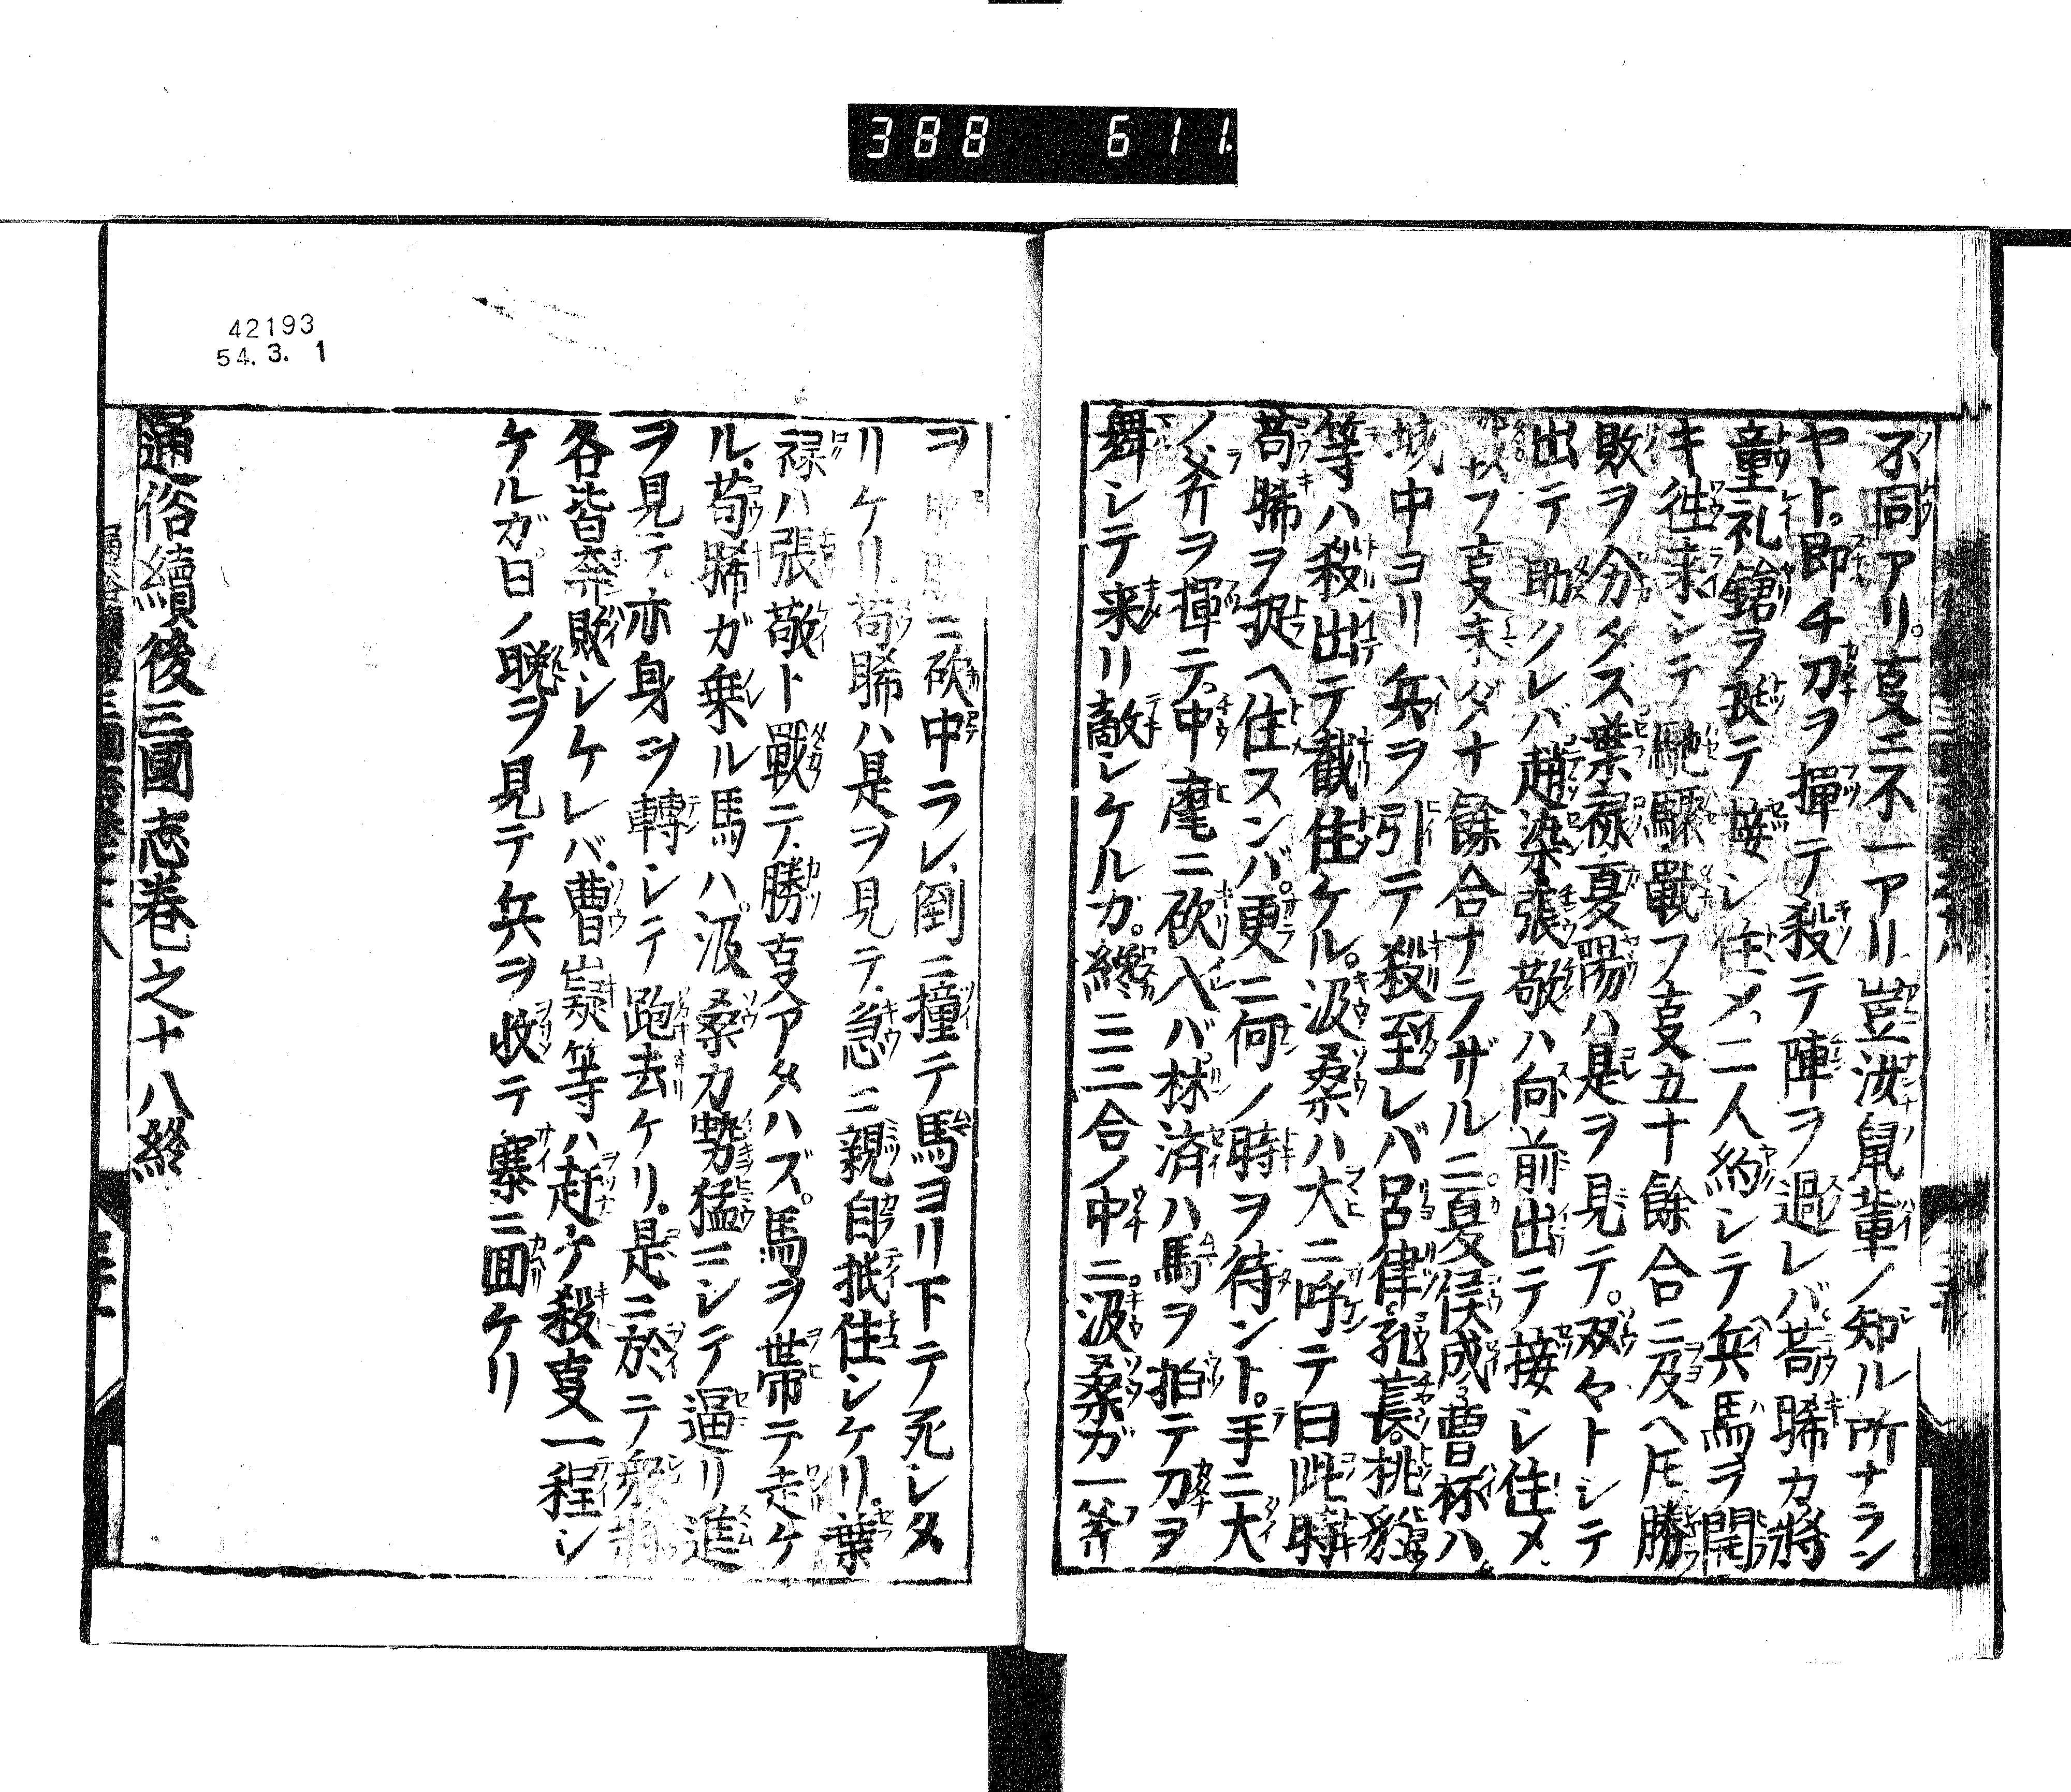 388 611
不同アリ。亊ニ不一アリ豈汝鼠輩ノ知ル所ナラン
ヤト。即チ刀ヲ揮テ殺テ陣ヲ過レバ。苟晞カ將
童礼鎗ヲ挺テ接シ住メ、二人約シテ兵馬ヲ開
キ徃来シテ馳驟戰フ亊五十餘合ニ及ヘ𪜈勝
敗ヲ分タス葉禄夏陽ハ是ヲ見テ。双々トシテ
出テ助クレバ趙染張敬ハ向前出テ接シ住メ、
戰フ亊未ダナ餘合ナラザルニ夏侯成曹杯ハ
城中ヨリ兵ヲ引テ殺至レバ呂律孔萇。桃豹
等ハ殺出テ截住ケル。汲桑ハ大ニ呼テ曰此時
苟晞ヲ捉ヘ住スンバ。更ニ何ノ時ヲ待ント。手ニ大
ノ斧ヲ揮テ。中麾ニ砍入バ林済ハ馬ヲ拍テ刀ヲ
舞シテ来リ敵シケルガ。纔ニ二三合ノ中ニ。汲桑ガ一斧
ヲニ砍中ラレ、倒ニ撞テ馬ヨリ下テ死シタ
リケリ、苟晞ハ是ヲ見テ、急ニ親自抵住シケリ。葉
禄ハ張敬ト戰テ、勝亊アタハズ。馬ヲ帯テ走ケ
ル、苟晞ガ乗ル馬ハ。汲桑カ勢猛ニシテ逼リ進
ヲ見テ、亦身ヲ轉シテ跑去ケリ、是ニ於テ衆將
各皆奔敗シケレバ。曹嶷等ハ赶ケ殺亊一程シ
ケルガ。日ノ晩ヲ見テ兵ヲ收テ寨ニ囬ケリ
通俗續後三國志巻之十八終
42193
54. 3. 1